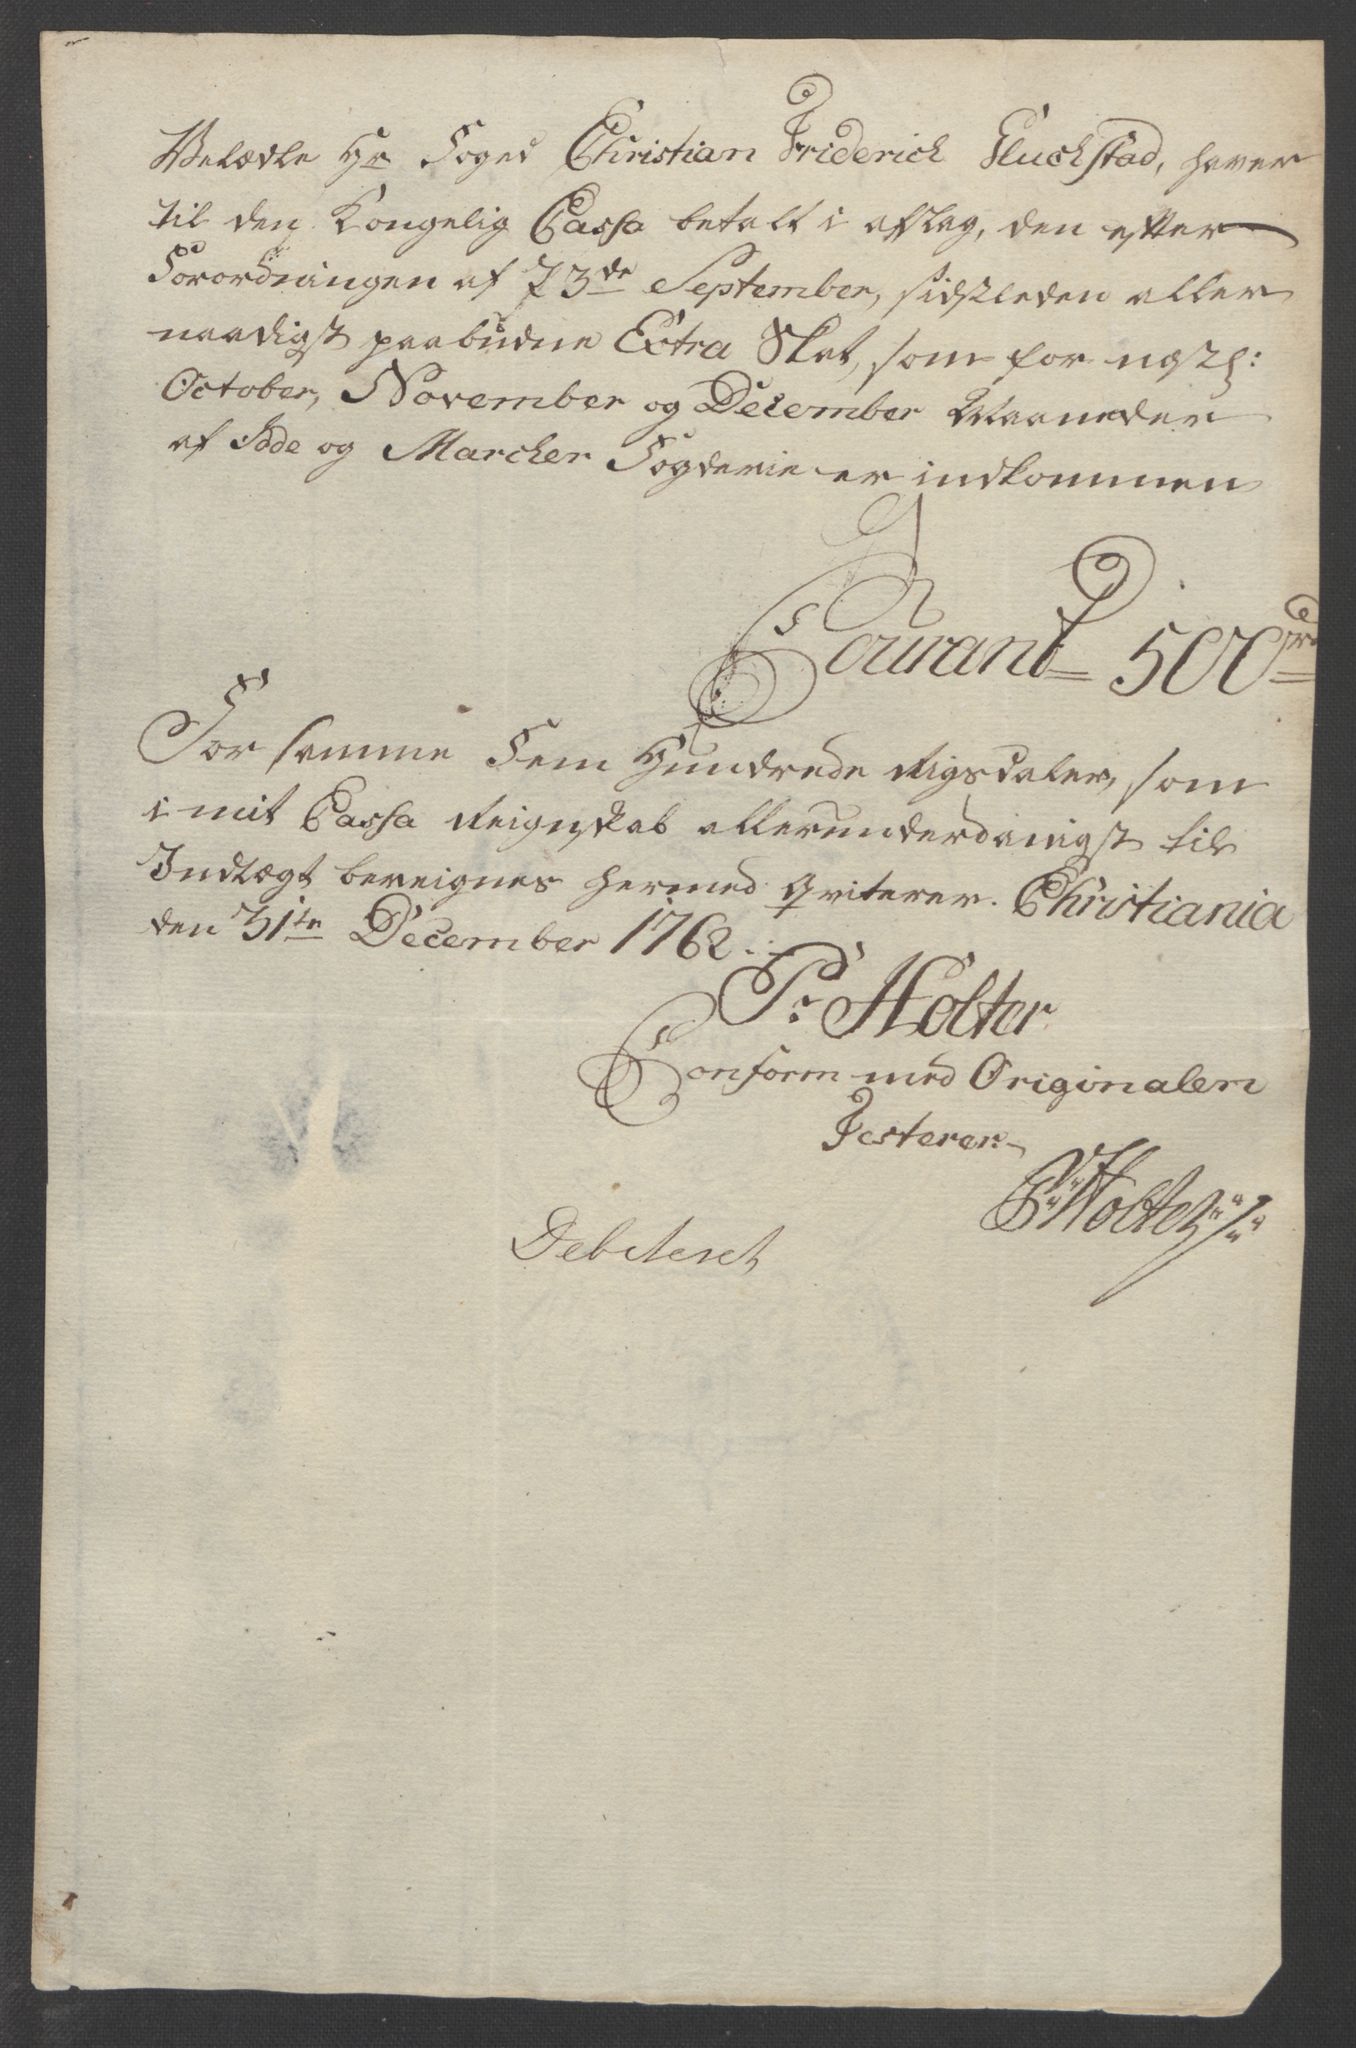 Velædle Hr Foged Christian Friderich Gluchstad, haver
til den Kongelig Cassa betalt i afslag, den efter
Forordningen af 23de September, sidstleden aller
naadigst paabudne Extra Skat, som for nestl:
October, November og December Maaneder
af Idde og Marcker Fogderie er indkommen
Courant 500 rd
For samme Fem Hundrede Rigsdaler, som
i mit Cassa Reignskab allerunderdanigst til
Indtægt bereignes hermed qviterer. Christiania
den 31te December 1762.
Pr Holter
Conform med Originalen
Testerer
Pr Holter